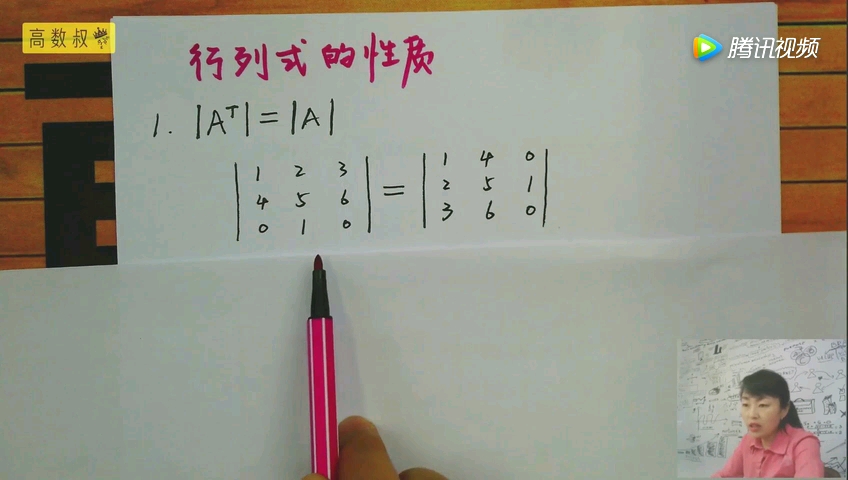 高数叔
腾讯视频
行列式的性质
1. |Aᵀ| = |A|
|1 2 3| = |1 4 0|
|4 5 6| |2 5 1|
|0 1 0| |3 6 0|